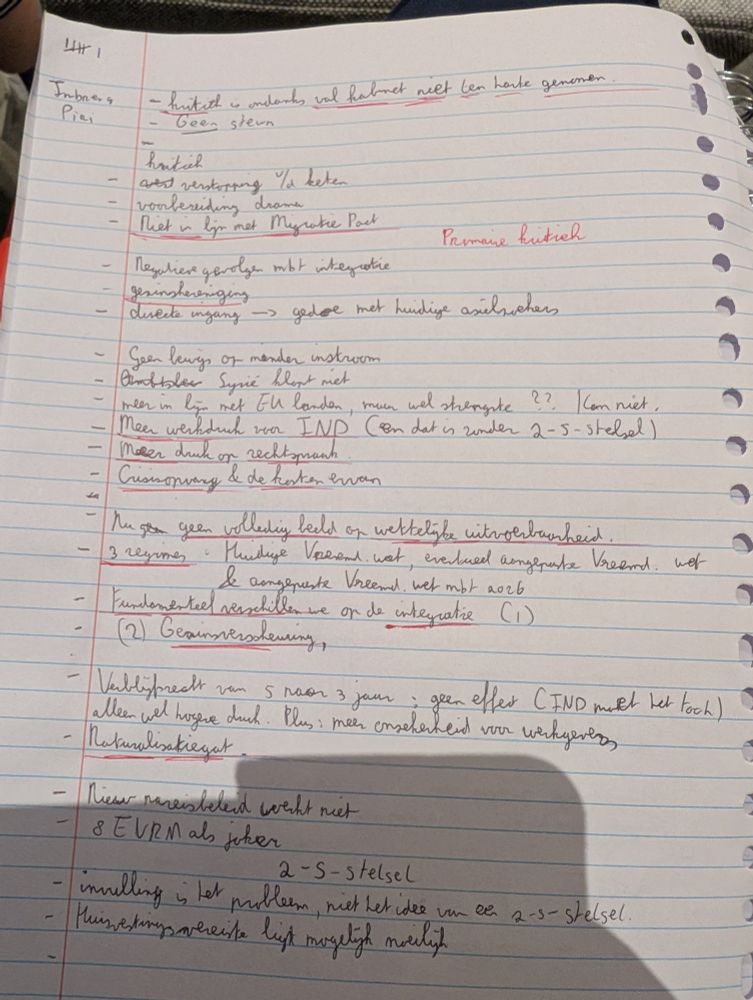 Inbreng
Piri
- kritiek is ondanks val kabinet niet ten harte genomen.
- Geen steun
-
kritiek
- verstopping v/d keten
- voorbereiding drama
- Niet in lijn met Migratie Pact
Primaire kritiek
- Negatieve gevolgen mbt integratie
- gezinshereniging
- directe ingang -> gedoe met huidige asielzoekers
- Geen bewijs op minder instroom
- Syrië klopt niet
- meer in lijn met EU landen, maar wel strengste ?? Kan niet.
- Meer werkdruk voor IND (en dat is zonder 2-S-stelsel)
- Meer druk op rechtspraak.
- Crisisopvang & de kosten ervan
- Nu geen volledig beeld op wettelijke uitvoerbaarheid.
- 3 regimes: Huidige Vreemd. wet, eventueel aangepaste Vreemd. wet
& aangepaste Vreemd. wet mbt 2026
- Fundamenteel verschillen we op de integratie (1)
- (2) Gezinsverscheuring,
- Verblijfsrecht van 5 naar 3 jaar: geen effect (IND moet het toch)
alleen wel hogere druk. Plus: meer onzekerheid voor werkgevers
- Naturalisatiegat.
- Nieuw nareisbeleid werkt niet
- 8 EVRM als joker
2-S-stelsel
- invulling is het probleem, niet het idee van een 2-s-stelsel.
- Huisvestingsvereiste ligt mogelijk moeilijk
-